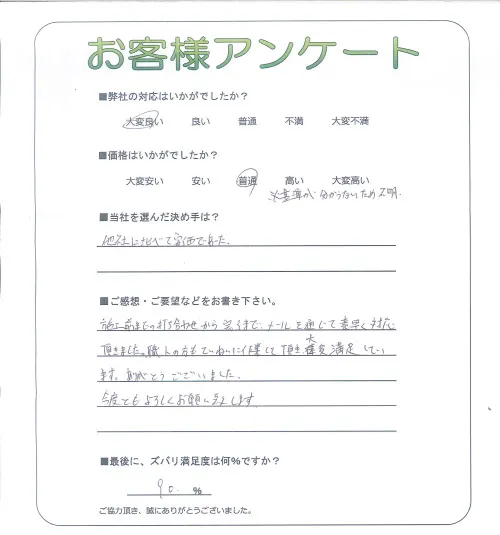 お客様アンケート
■弊社の対応はいかがでしたか？
大変良い 良い 普通 不満 大変不満
■価格はいかがでしたか？
大変安い 安い 普通 高い 大変高い
※基準が分からないため不明.
■当社を選んだ決め手は？
他社に比べて安価であった.
■ご感想・ご要望などをお書き下さい。
施工前までの打ち合わせから完了まで、メールを通じて素早く対応
頂きました。職人の方もていねいに作業して頂き大変満足してい
ます。ありがとうございました.
今度ともよろしくお願い致します
■最後に、ズバリ満足度は何%ですか？
90. %
ご協力頂き、誠にありがとうございました。